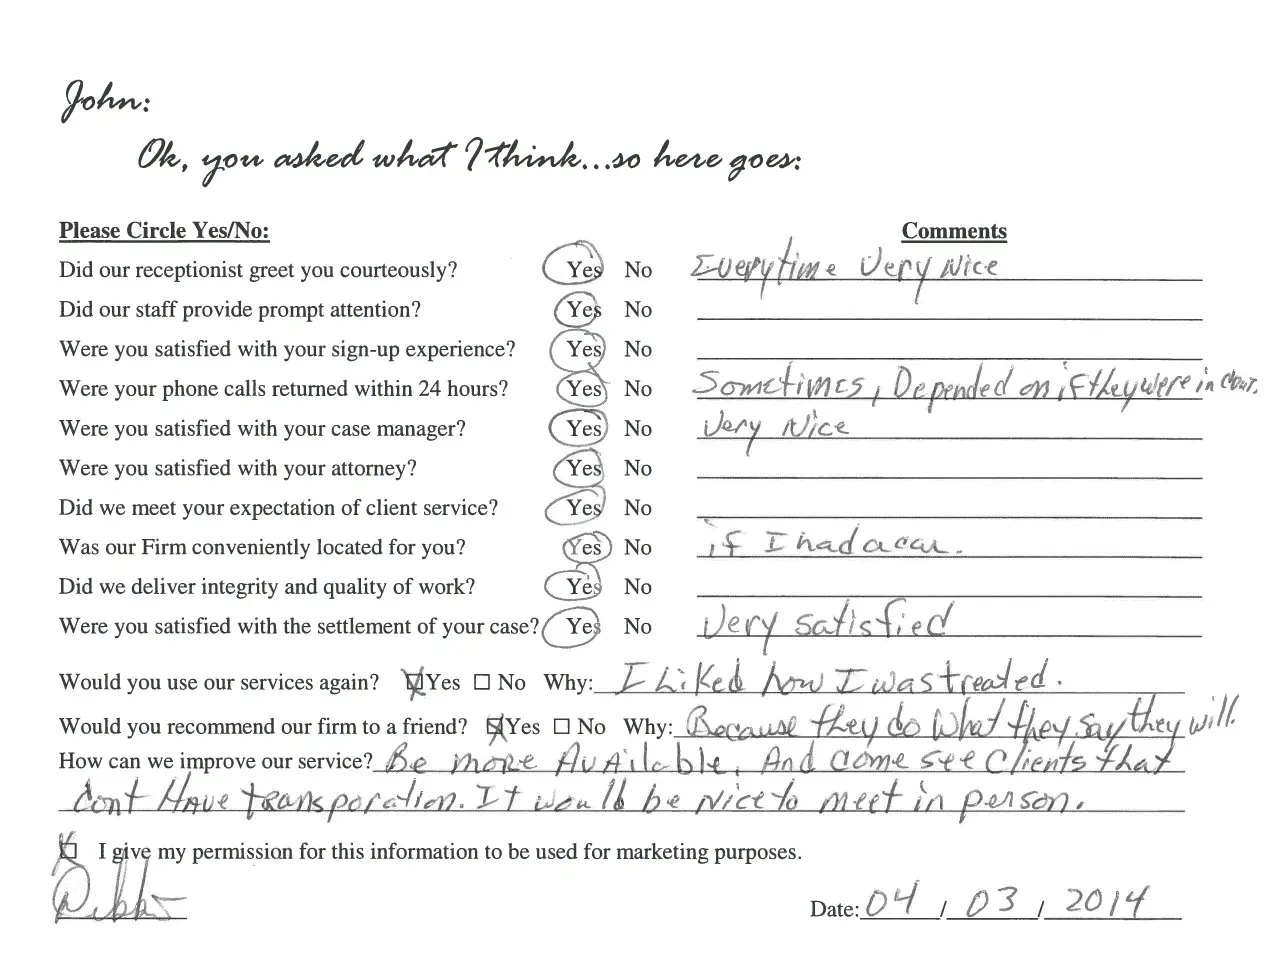 John:
Ok, you asked what I think...so here goes:
Please Circle Yes/No: Comments
Did our receptionist greet you courteously? Yes No Everytime Very Nice
Did our staff provide prompt attention? Yes No
Were you satisfied with your sign-up experience? Yes No
Were your phone calls returned within 24 hours? Yes No Sometimes, Depended on if they were in Court.
Were you satisfied with your case manager? Yes No Very Nice
Were you satisfied with your attorney? Yes No
Did we meet your expectation of client service? Yes No
Was our Firm conveniently located for you? Yes No if I had a car.
Did we deliver integrity and quality of work? Yes No
Were you satisfied with the settlement of your case? Yes No Very satisfied
Would you use our services again? ☒ Yes ☐ No Why: I Liked how I was treated.
Would you recommend our firm to a friend? ☒ Yes ☐ No Why: Because they do What they say they will.
How can we improve our service? Be more Available, And Come see Clients that
dont Have transporation. It would be Nice to meet in person.
☒ I give my permission for this information to be used for marketing purposes.
Debbie
Date: 04 / 03 / 2014